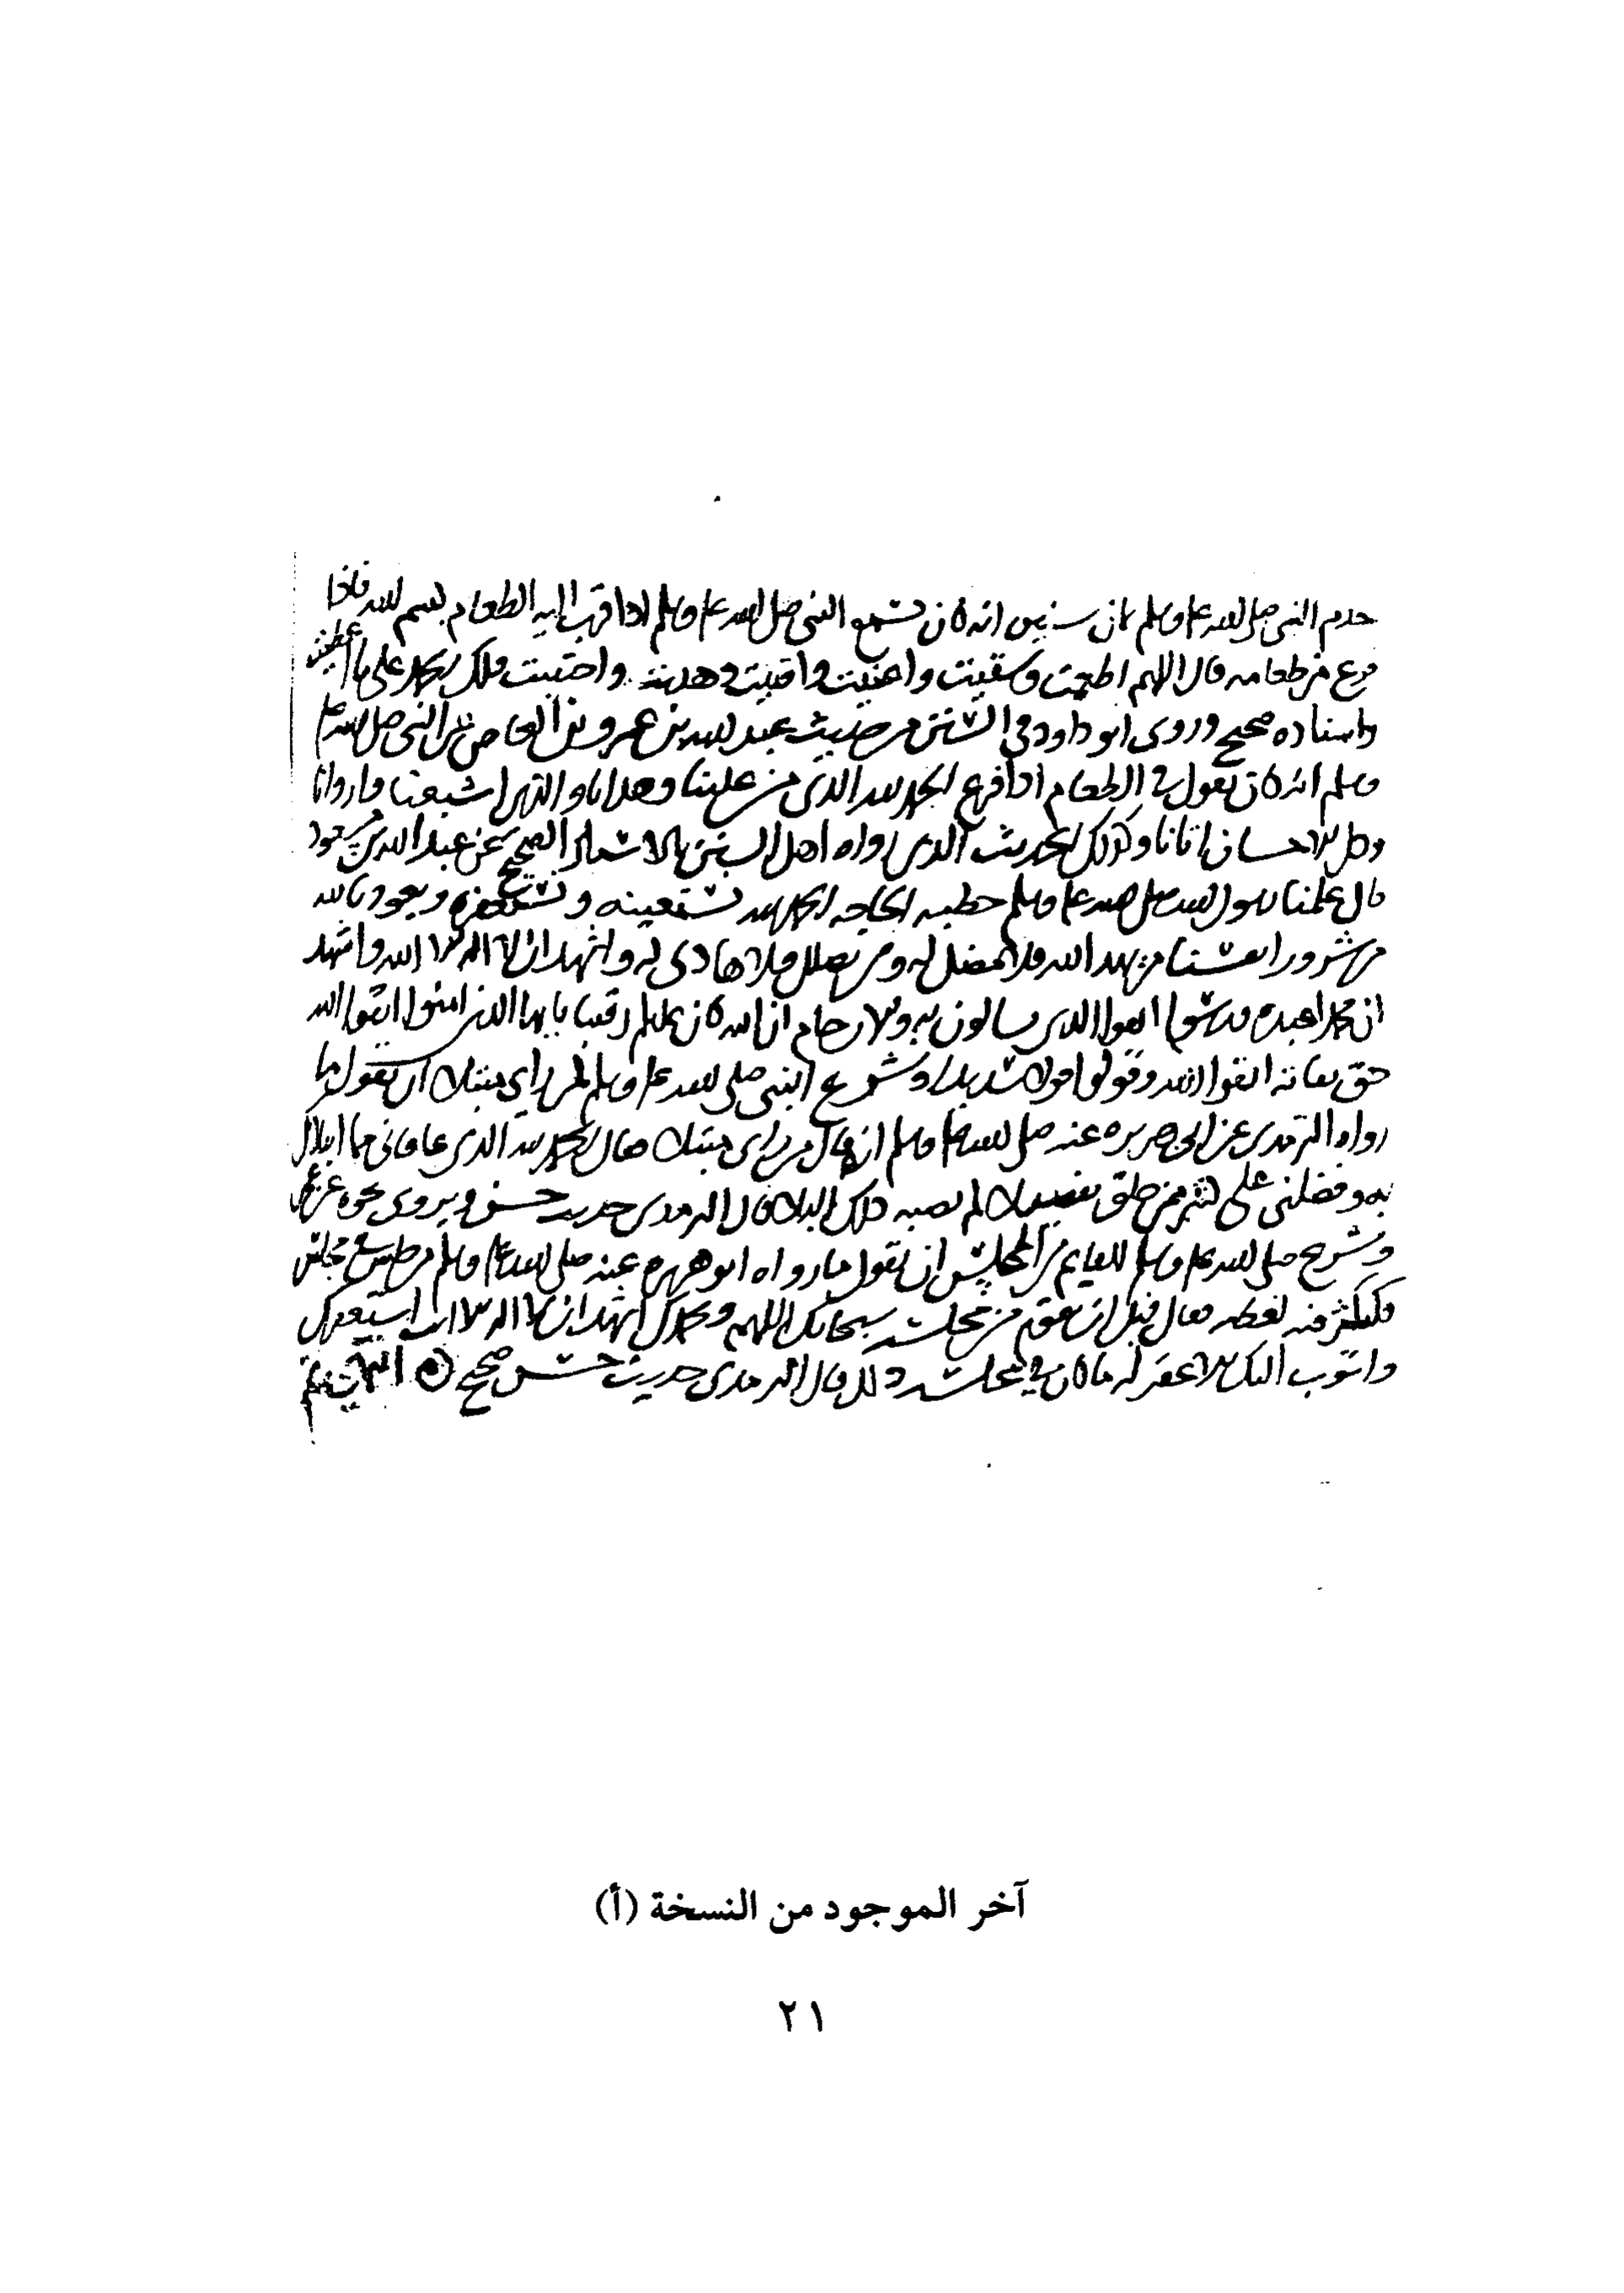 خدم النبي صلى الله علم وسلم ثمان سنين انه كان يسمع النبي صلى الله علم وسلم اذا قرب اليه الطعام بسم الله فاذا
فرغ من طعامه قال اللهم اطعمت وسقيت واغنيت واقنيت وهديت واحتبيت فلك الحمد على ما اعطيت
واسناده صحيح وروى ابو داود في السنن من حديث عبد الله بن عمرو بن العاص عن النبي صلى الله علم
وسلم انه كان يقول في الطعام اذا فرغ الحمد لله الذي من علينا وهدانا والذي اشبعنا واروانا
وكل الاحسان اتانا وكذلك الحديث الذي رواه اهل السنن بالاسناد الصحيح عن عبد الله بن مسعود
قال علمنا رسول الله صلى الله علم وسلم خطبه الحاجه الحمد لله نستعينه ونستغفره ونعوذ بالله
من شرور انفسنا من يهد الله فلا مضل له ومن يضلل فلا هادي له واشهد ان لا اله الا الله واشهد
ان محمدا عبده ورسوله اتقوا الله الذي تسالون به والارحام ان الله كان عليكم رقيبا يا يها الذين امنوا اتقوا الله
حق تقاته اتقوا الله وقولوا قولا سديدا وشرع النبي صلى الله علم وسلم لمن راى مبتلا ان يقول ما
رواه الترمدى عن ابى هريره عنه صلى الله علم وسلم انه قال من راى مبتلا فقال الحمد لله الذي عافاني مما ابتلاك
به وفضلني على كثير ممن خلق تفضيلا لم يصبه ذلك البلا قال الترمدى حديث حسن ويروى نحوه عن عمر
وشرع صلى الله علم وسلم للقايم من المجلس ان يقول ما رواه ابو هريره عنه صلى الله علم وسلم من جلس مجلس
فكثر فيه لغطه فقال قبل ان يقوم من مجلسه سبحانك اللهم وبحمدك اشهد ان لا اله الا انت استغفرك
واتوب اليك الا غفر له ما كان في مجلسه ذلك قال الترمدى حديث حسن صحيح
آخر الموجود من النسخة (أ)
٢١